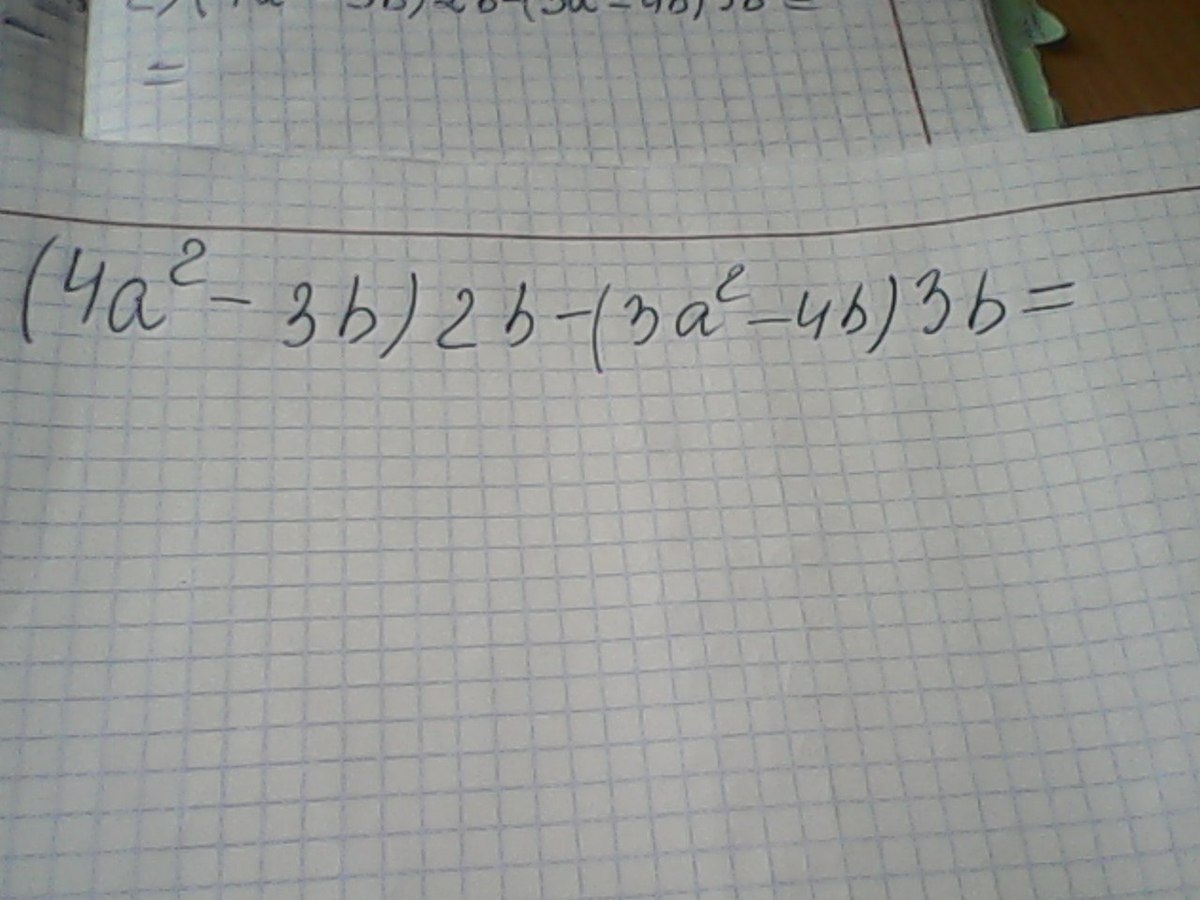 =
(4a² - 3b) 2b - (3a² - 4b) 3b =